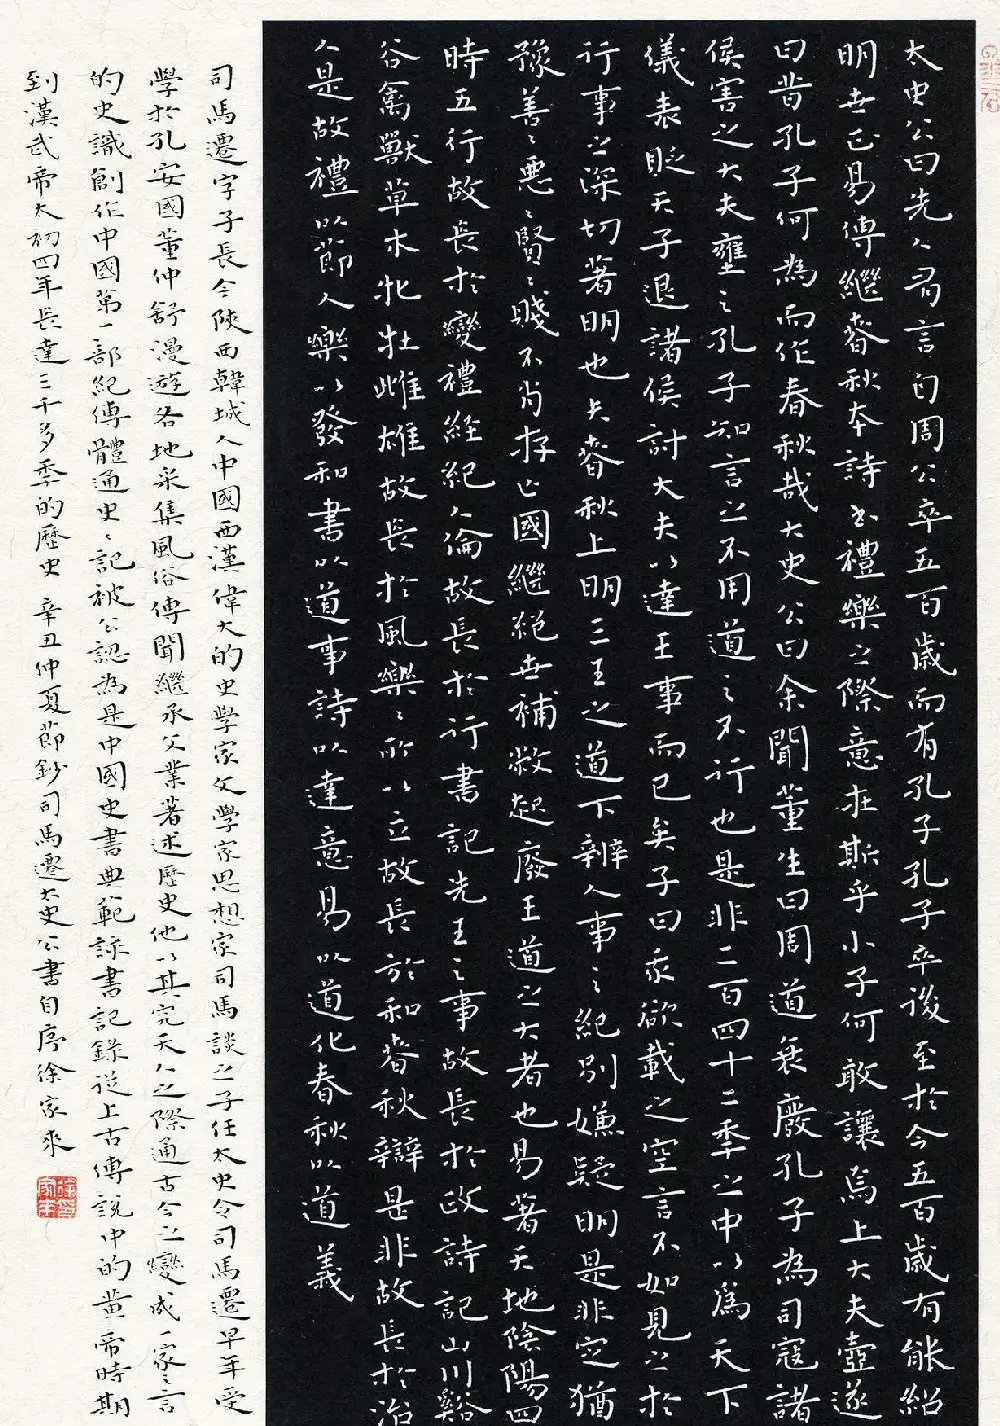 太史公曰先人有言自周公卒五百歲而有孔子孔子卒後至於今五百歲有能紹
明世正易傳繼春秋本詩書禮樂之際意在斯乎小子何敢讓焉上大夫壺遂
曰昔孔子何為而作春秋哉太史公曰余聞董生曰周道衰廢孔子為司寇諸
侯害之大夫壅之孔子知言之不用道之不行也是非二百四十二年之中以為天下
儀表貶天子退諸侯討大夫以達王事而已矣子曰我欲載之空言不如見之於
行事之深切著明也夫春秋上明三王之道下辨人事之紀別嫌疑明是非定猶
豫善〻惡〻賢〻賤不肖存亡國繼絕世補敝起廢王道之大者也易著天地陰陽四
時五行故長於變禮經紀人倫故長於行書記先王之事故長於政詩記山川谿
谷禽獸草木牝牡雌雄故長於風樂〻所以立故長於和春秋辯是非故長於治
人是故禮以節人樂以發和書以道事詩以達意易以道化春秋以道義
司馬遷字子長今陝西韓城人中國西漢偉大的史學家文學家思想家司馬談之子任太史令司馬遷早年受
學於孔安國董仲舒漫遊各地采集風俗傳聞繼承父業著述歷史他以其究天人之際通古今之變成一家之言
的史識創作中國第一部紀傳體通史〻記被公認為是中國史書典範該書記錄從上古傳說中的黃帝時期
到漢武帝太初四年長達三千多年的歷史 辛丑仲夏節鈔司馬遷太史公書自序徐家來